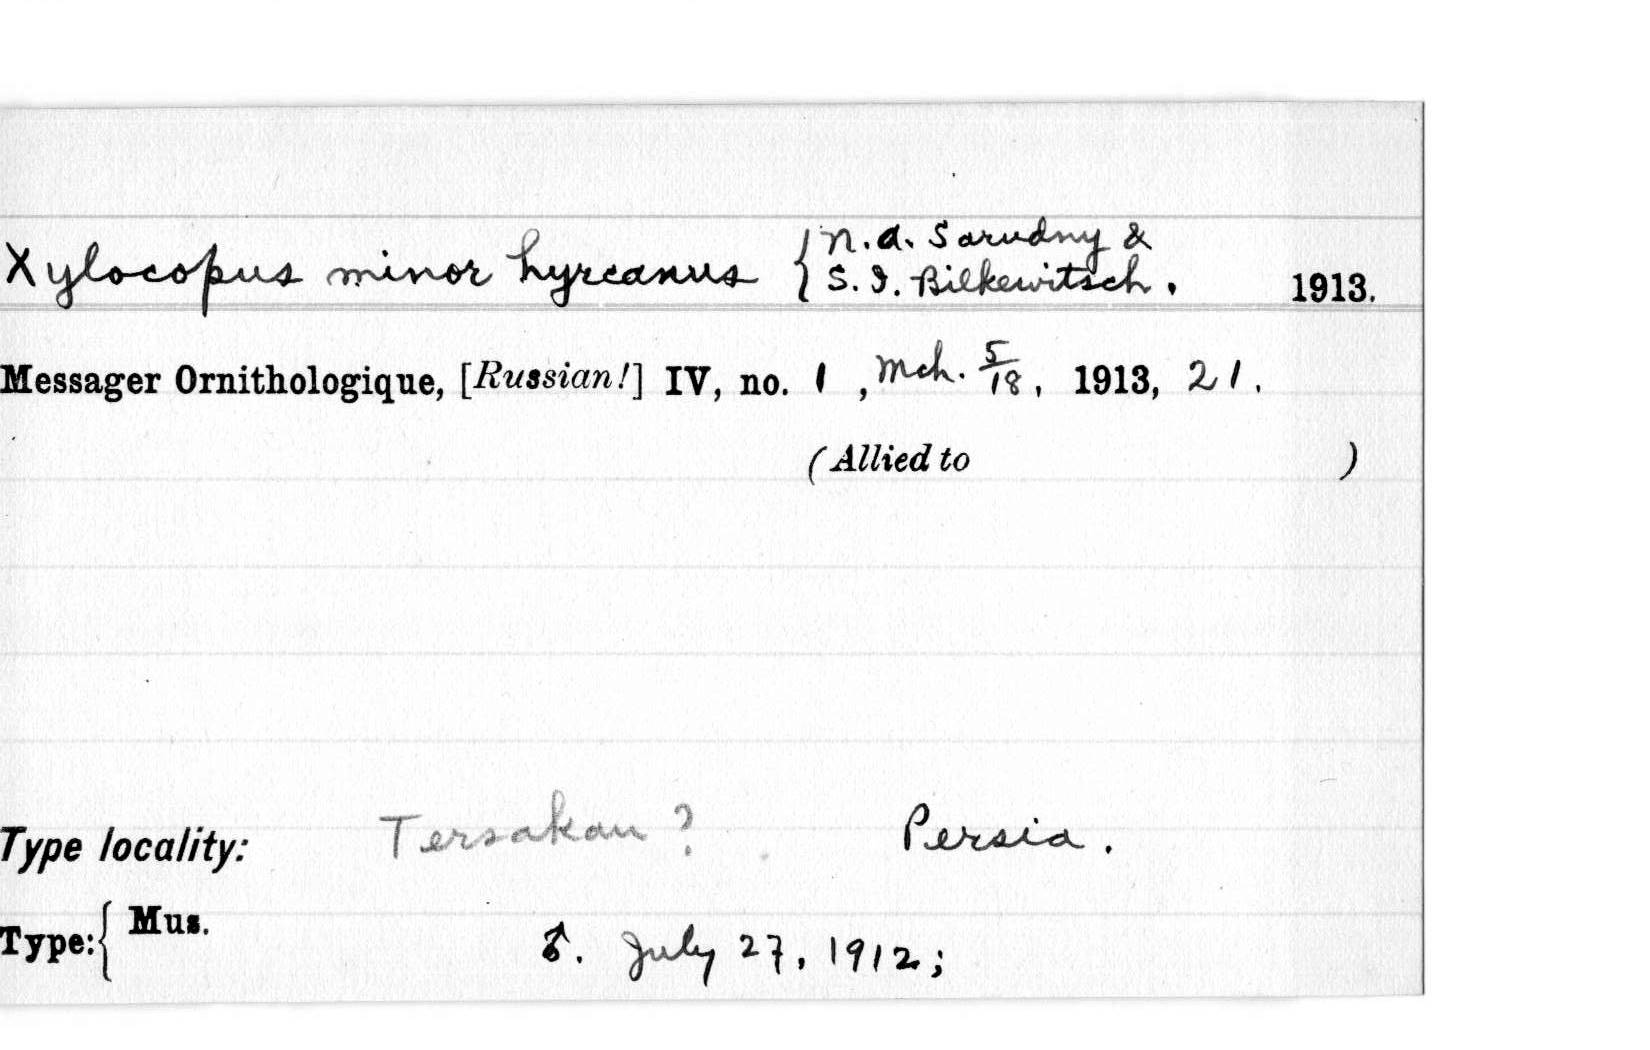 Xylocopus minor hyrcanus { N. A. Sarudny &
S. I. Bilkewitsch. 1913.
Messager Ornithologique, [Russian!] IV, no. 1, Mch. 5/18, 1913, 21.
(Allied to )
Type locality: Tersakan ? Persia.
Type: { Mus. ♂. July 27, 1912;